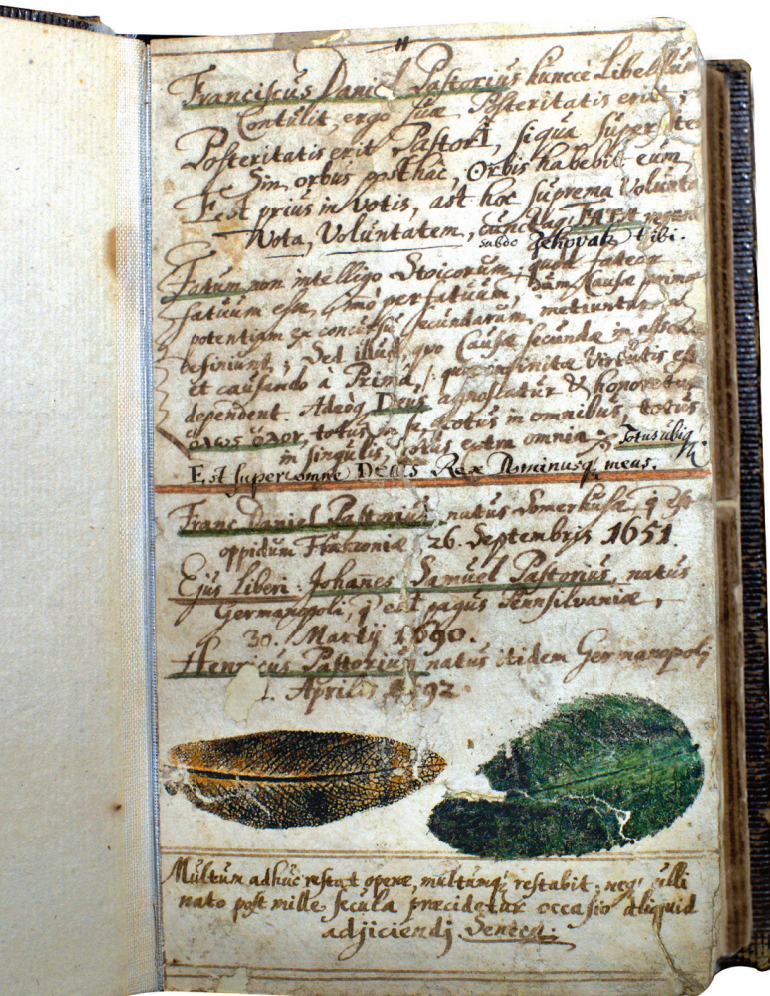 Franciscus Daniel Pastorius huncce Libellum
Contulit, ergo suæ Posteritatis erit;
Posteritatis erit PastorI, siqua superste
Sin orbus posthâc, Orbis habebit eum
Fest prius in votis, ast hoc suprema Volunta
Vota, Voluntatem, cunctaq; FATA
subdo Jehovah tibi.
Fatum non intelligo Stoicorum, quod fateor
fatuum esse, imò perfatuum, dum Causæ primæ
potentiam ex concursu secundarum metiuntur a
definiunt; Sed illud, quo Causæ secundæ in essen
et causando à Prima, /: quæ infinitæ Virtutis est
dependent. Adeòq; Deus agnoscatur & honoretur
totus in se, totus in omnibus, totus
in singulis, totus extra omnia &
Totus ubiq;
Est super omne DEUS Rex Dominusq; meus.
Franc. Daniel Pastorius, natus Somerhusæ, q est
oppidum Franconiæ 26. Septembris 1651.
Ejus Liberi: Johanes Samuel Pastorius, natus
Germanopoli, q est pagus Pennsilvaniæ,
30. Martij 1690.
Henricus Pastorius natus itidem Germanopolj
1. Aprilis 1692.
Multum adhuc restat operæ, multumq; restabit, neq; ulli
nato post mille secula præcidetur occasio aliquid
adjiciendj. Seneca.